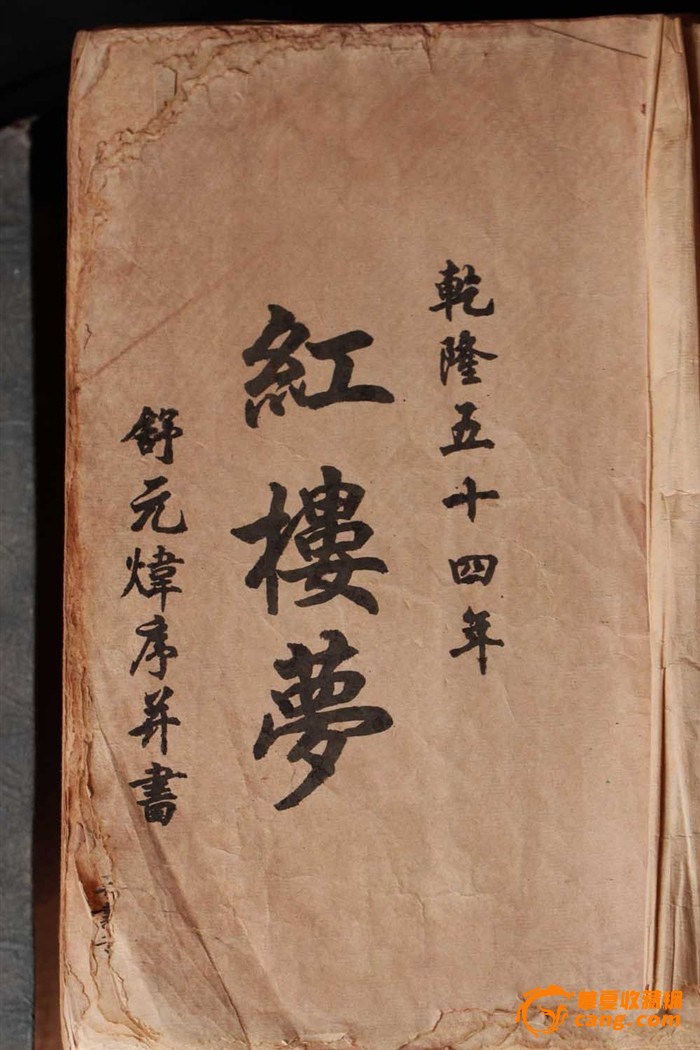 乾隆五十四年
紅樓夢
舒元煒序并書
華夏收藏網
cang.com